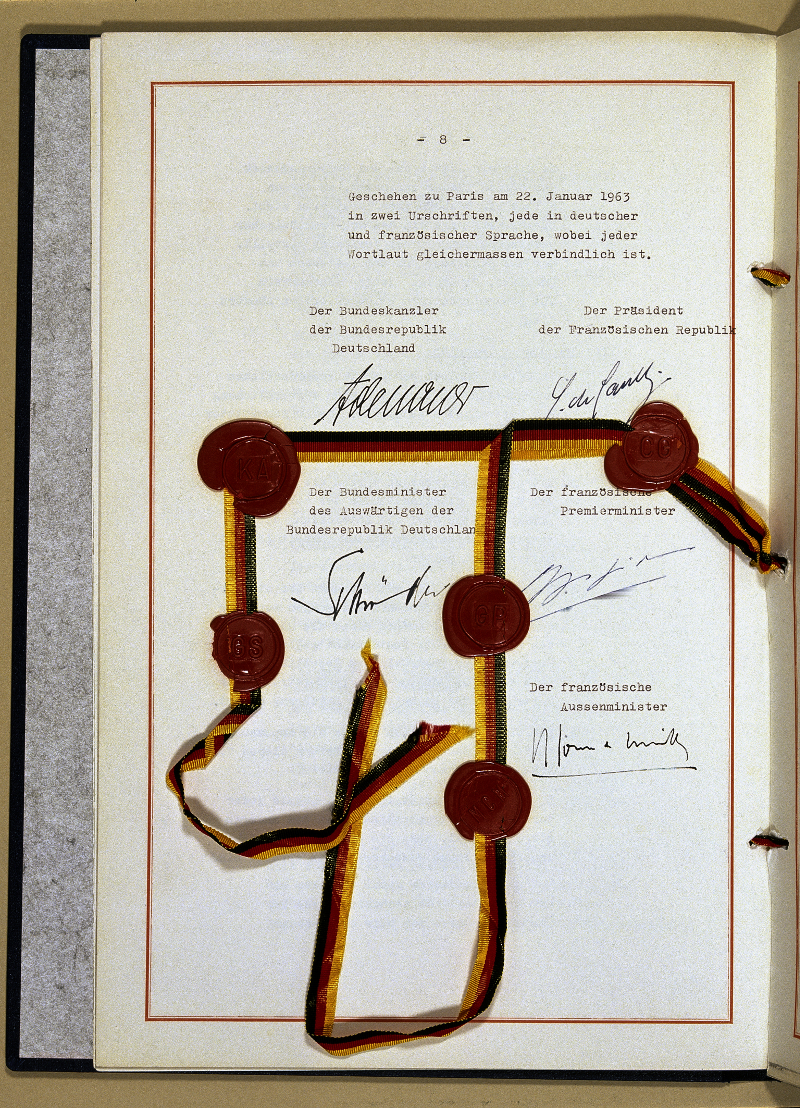 - 8 -
Geschehen zu Paris am 22. Januar 1963
in zwei Urschriften, jede in deutscher
und französischer Sprache, wobei jeder
Wortlaut gleichermassen verbindlich ist.
Der Bundeskanzler
der Bundesrepublik
Deutschland
Der Präsident
der Französischen Republik
Adenauer
G. de Gaulle
Der Bundesminister
des Auswärtigen der
Bundesrepublik Deutschlan
Der französische
Premierminister
Schröder
GS
Der französische
Aussenminister